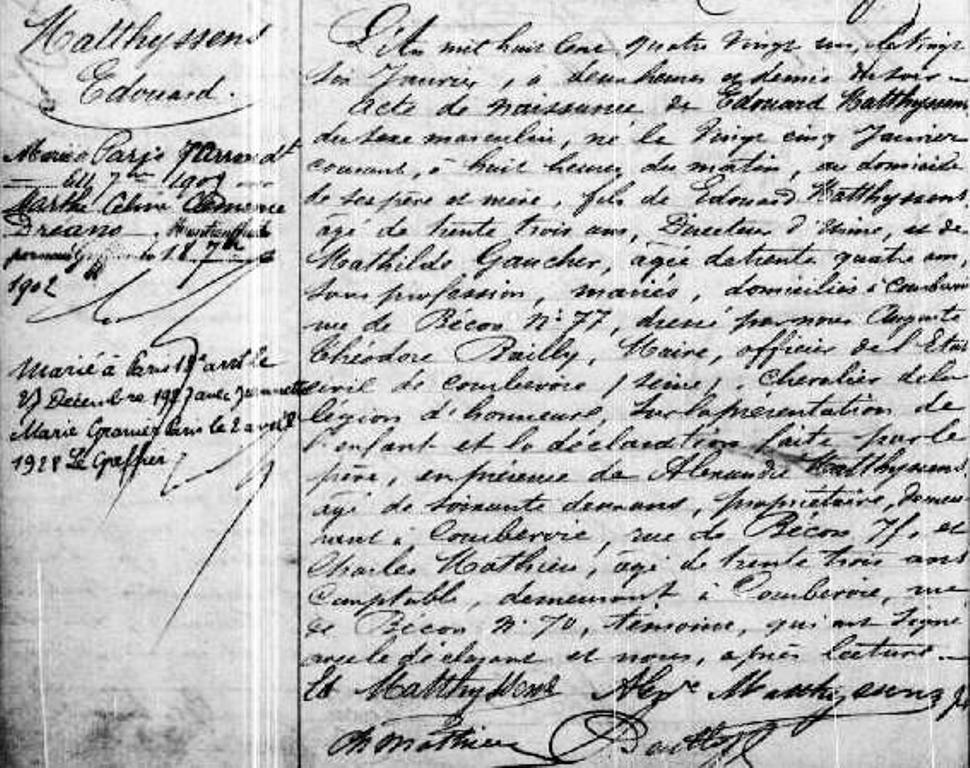 Matthyssens
Edouard.
Marié à Paris 7e arrondt
le 7bre 1909
Marthe Céline Clémence
Dreano
18 7bre
1902
Marié à Paris 18e arrt le
27 Décembre 1927 avec Jeannette
Marie Granier Paris le 2 avril
1928 Le Greffier
L'An mil huit cent quatre vingt un, le vingt
six Janvier, à deux heures et demie du soir -
Acte de naissance de Edouard Matthyssens
du sexe masculin, né le vingt cinq Janvier
courant, à huit heures du matin, au domicile
de ses père et mère, fils de Edouard Matthyssens
âgé de trente trois ans, Directeur d'usine, et de
Mathilde Gaucher, âgée de trente quatre ans,
sans profession, mariés, domiciliés à Courbevoie
rue de Bécon N° 77, dressé par nous Auguste
Théodore Bailly, Maire, officier de l'Etat
civil de Courbevoie (Seine), Chevalier de la
légion d'honneur, sur la présentation de
l'enfant et la déclaration faite par le
père, en présence de Alexandre Matthyssens
âgé de soixante deux ans, propriétaire, demeu
rant à Courbevoie, rue de Bécon 75, et
Charles Mathieu, âgé de trente trois ans
Comptable, demeurant à Courbevoie, rue
de Bécon N° 70, témoins, qui ont signé
avec le déclarant et nous, après lecture. -
Ed Matthyssens Alexre Matthyssens
Ch Mathieu Bailly